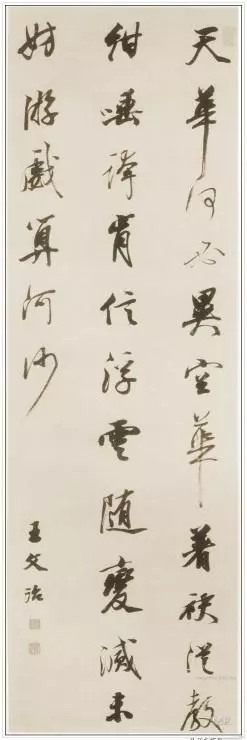 天華何必異空華著袂從教
紺唾誇肯信浮雲隨變滅未
妨游戲算河沙
王文治